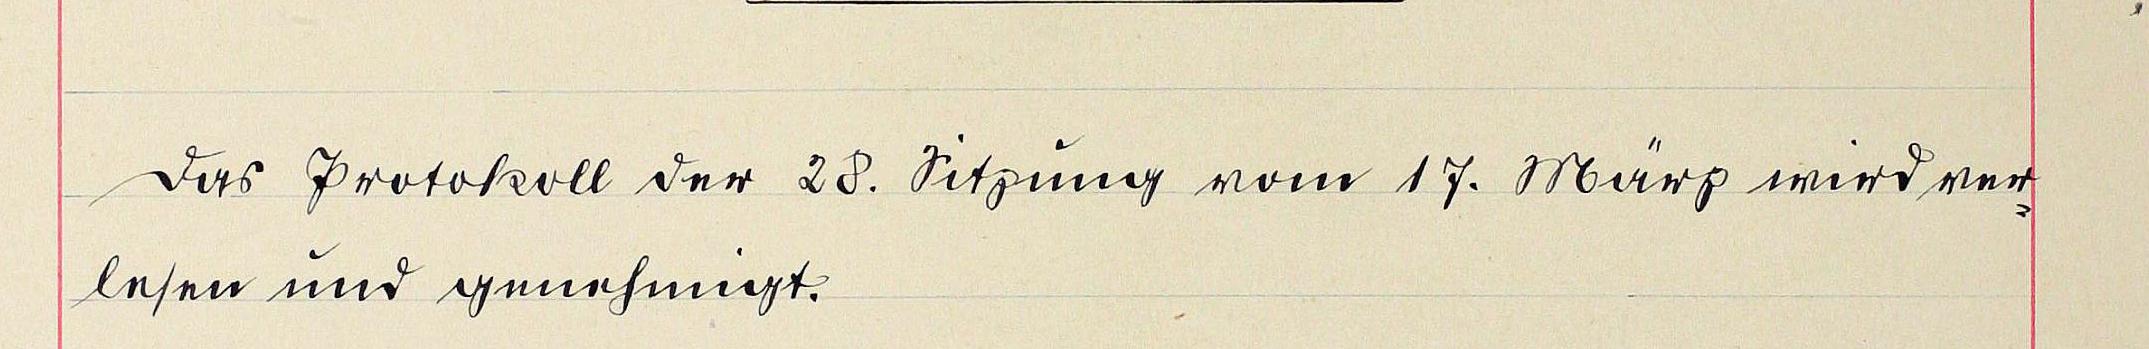 Das Protokoll der 28. Sitzung vom 17. März wird ver=
lesen und genehmigt.